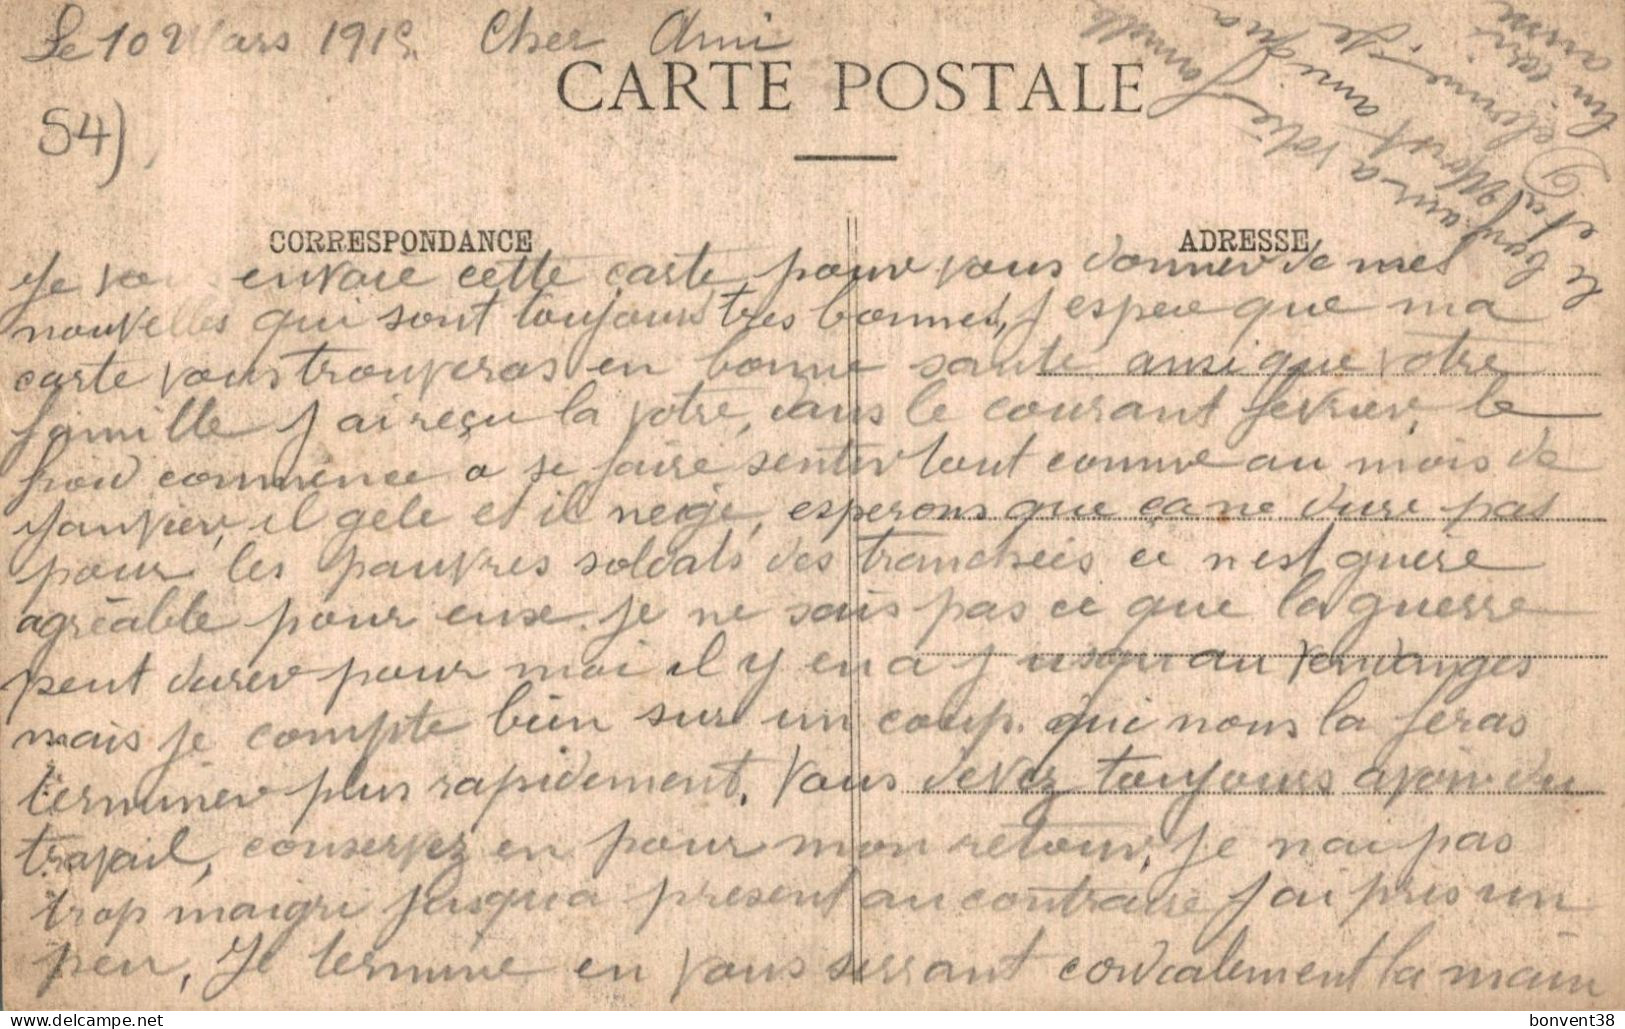 Le 10 Mars 1915. Cher Ami
54)
CARTE POSTALE
CORRESPONDANCE
ADRESSE
Je vous envoie cette carte pour vous donner de mes
nouvelles qui sont toujours tres bonnes, j espere que ma
carte vous trouveras en bonne sante ansi que votre
famille J ai reçu la votre, dans le courant fevrier, le
froid commence a se faire sentir tout comme au mois de
Janvier, il gele et il neige, esperons que ça ne dure pas
pour les pauvres soldats des tranchées ce n est guere
agréable pour eux. je ne sais pas ce que la guerre
peut durer pour moi il y en a j usqu au vendanges
mais je compte bien sur un coup. qui nous la feras
terminer plus rapidement. Vous devez toujours avoir du
travail, conservez en pour mon retour, Je nai pas
trop maigri jusqua present au contraire j ai pris un
peu, Je termine en vous serrant cordialement la main
et a
votre famille
ami